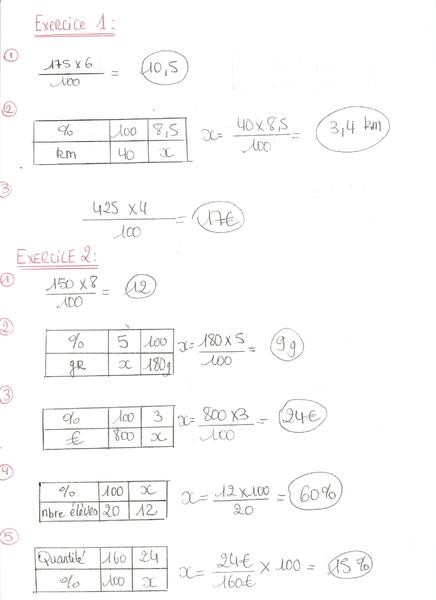 Exercice 1:
① 175 x 6 / 100 = 10,5
② % | 100 | 8,5
km | 40 | x
x = 40 x 8,5 / 100 = 3,4 km
③ 425 x 4 / 100 = 17€
EXERCICE 2:
① 150 x 8 / 100 = 12
② % | 5 | 100
gr | x | 180g
x = 180 x 5 / 100 = 9g
③ % | 100 | 3
€ | 800 | x
x = 800 x 3 / 100 = 24€
④ % | 100 | x
nbre élèves | 20 | 12
x = 12 x 100 / 20 = 60%
⑤ Quantité | 160 | 24
% | 100 | x
x = 24€ / 160€ x 100 = 15%